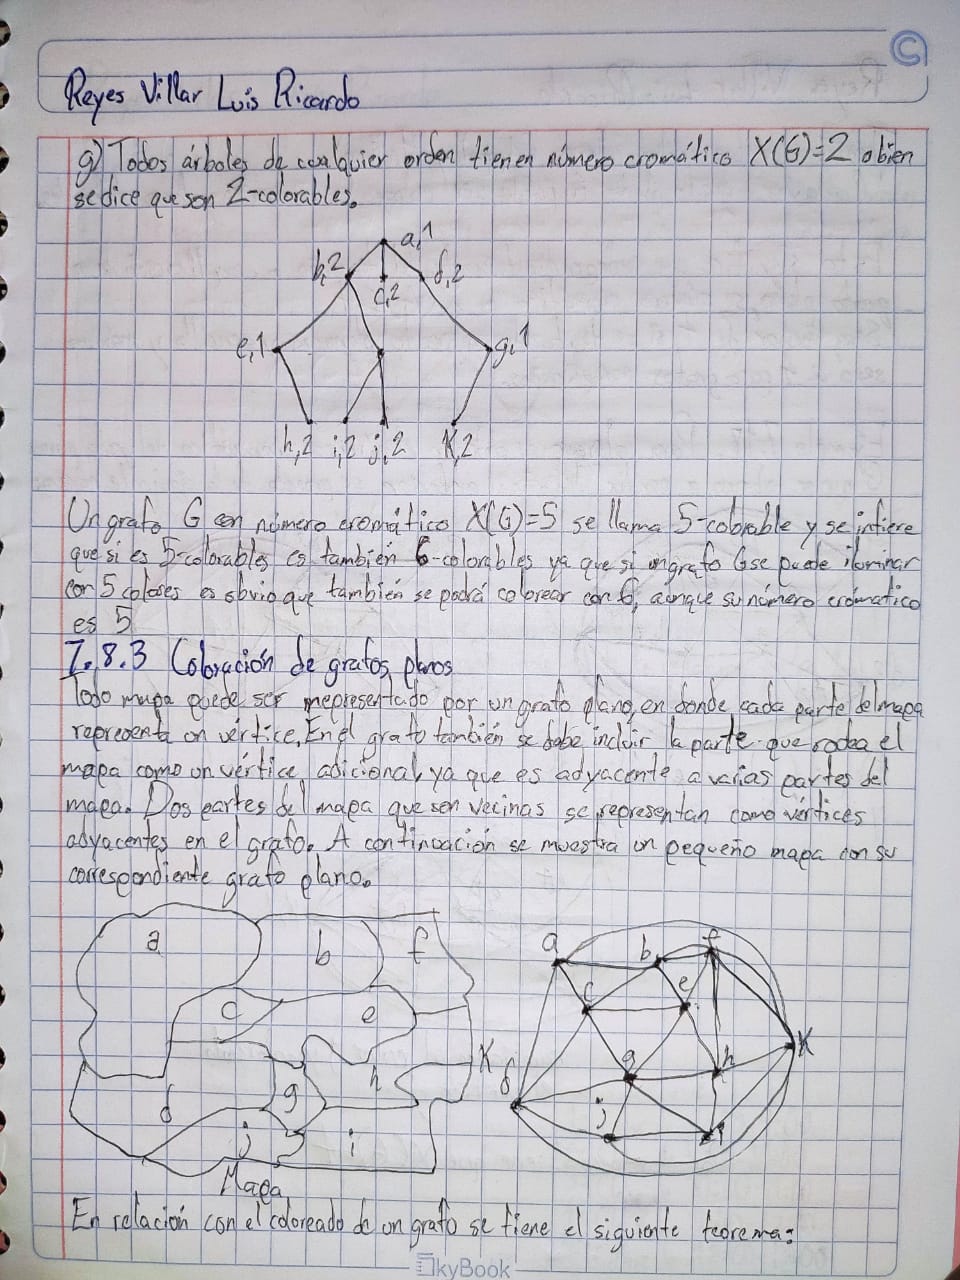 Reyes Villar Luis Ricardo
g) Todos árboles de cualquier orden tienen número cromático X(G)=2 o bien
se dice que son 2-colorables.
a,1
b,2
c,2
d,2
e,1
g,1
h,2 i,2 j,2 K,2
Un grafo G con número cromático X(G)=5 se llama 5-colorable y se infiere
que si es 5-colorables es también 6-colorables ya que si un grafo G se puede iluminar
con 5 colores es obvio que también se podrá colorear con 6, aunque su número cromatico
es 5
7.8.3 Coloración de grafos planos
Todo mapa puede ser mepresentado por un grafo plano, en donde cada parte del mapa
representa un vértice. En el grafo también se debe incluir la parte que rodea el
mapa como un vértice adicional, ya que es adyacente a varias partes del
mapa. Dos partes del mapa que son vecinas se representan como vértices
adyacentes en el grafo. A continuación se muestra un pequeño mapa con su
correspondiente grafo plano.
a b f
c e
K
h
d g
j i
Mapa
a b f
c e
g h K
d
j i
En relación con el coloreado de un grafo se tiene el siguiente teorema:
SkyBook